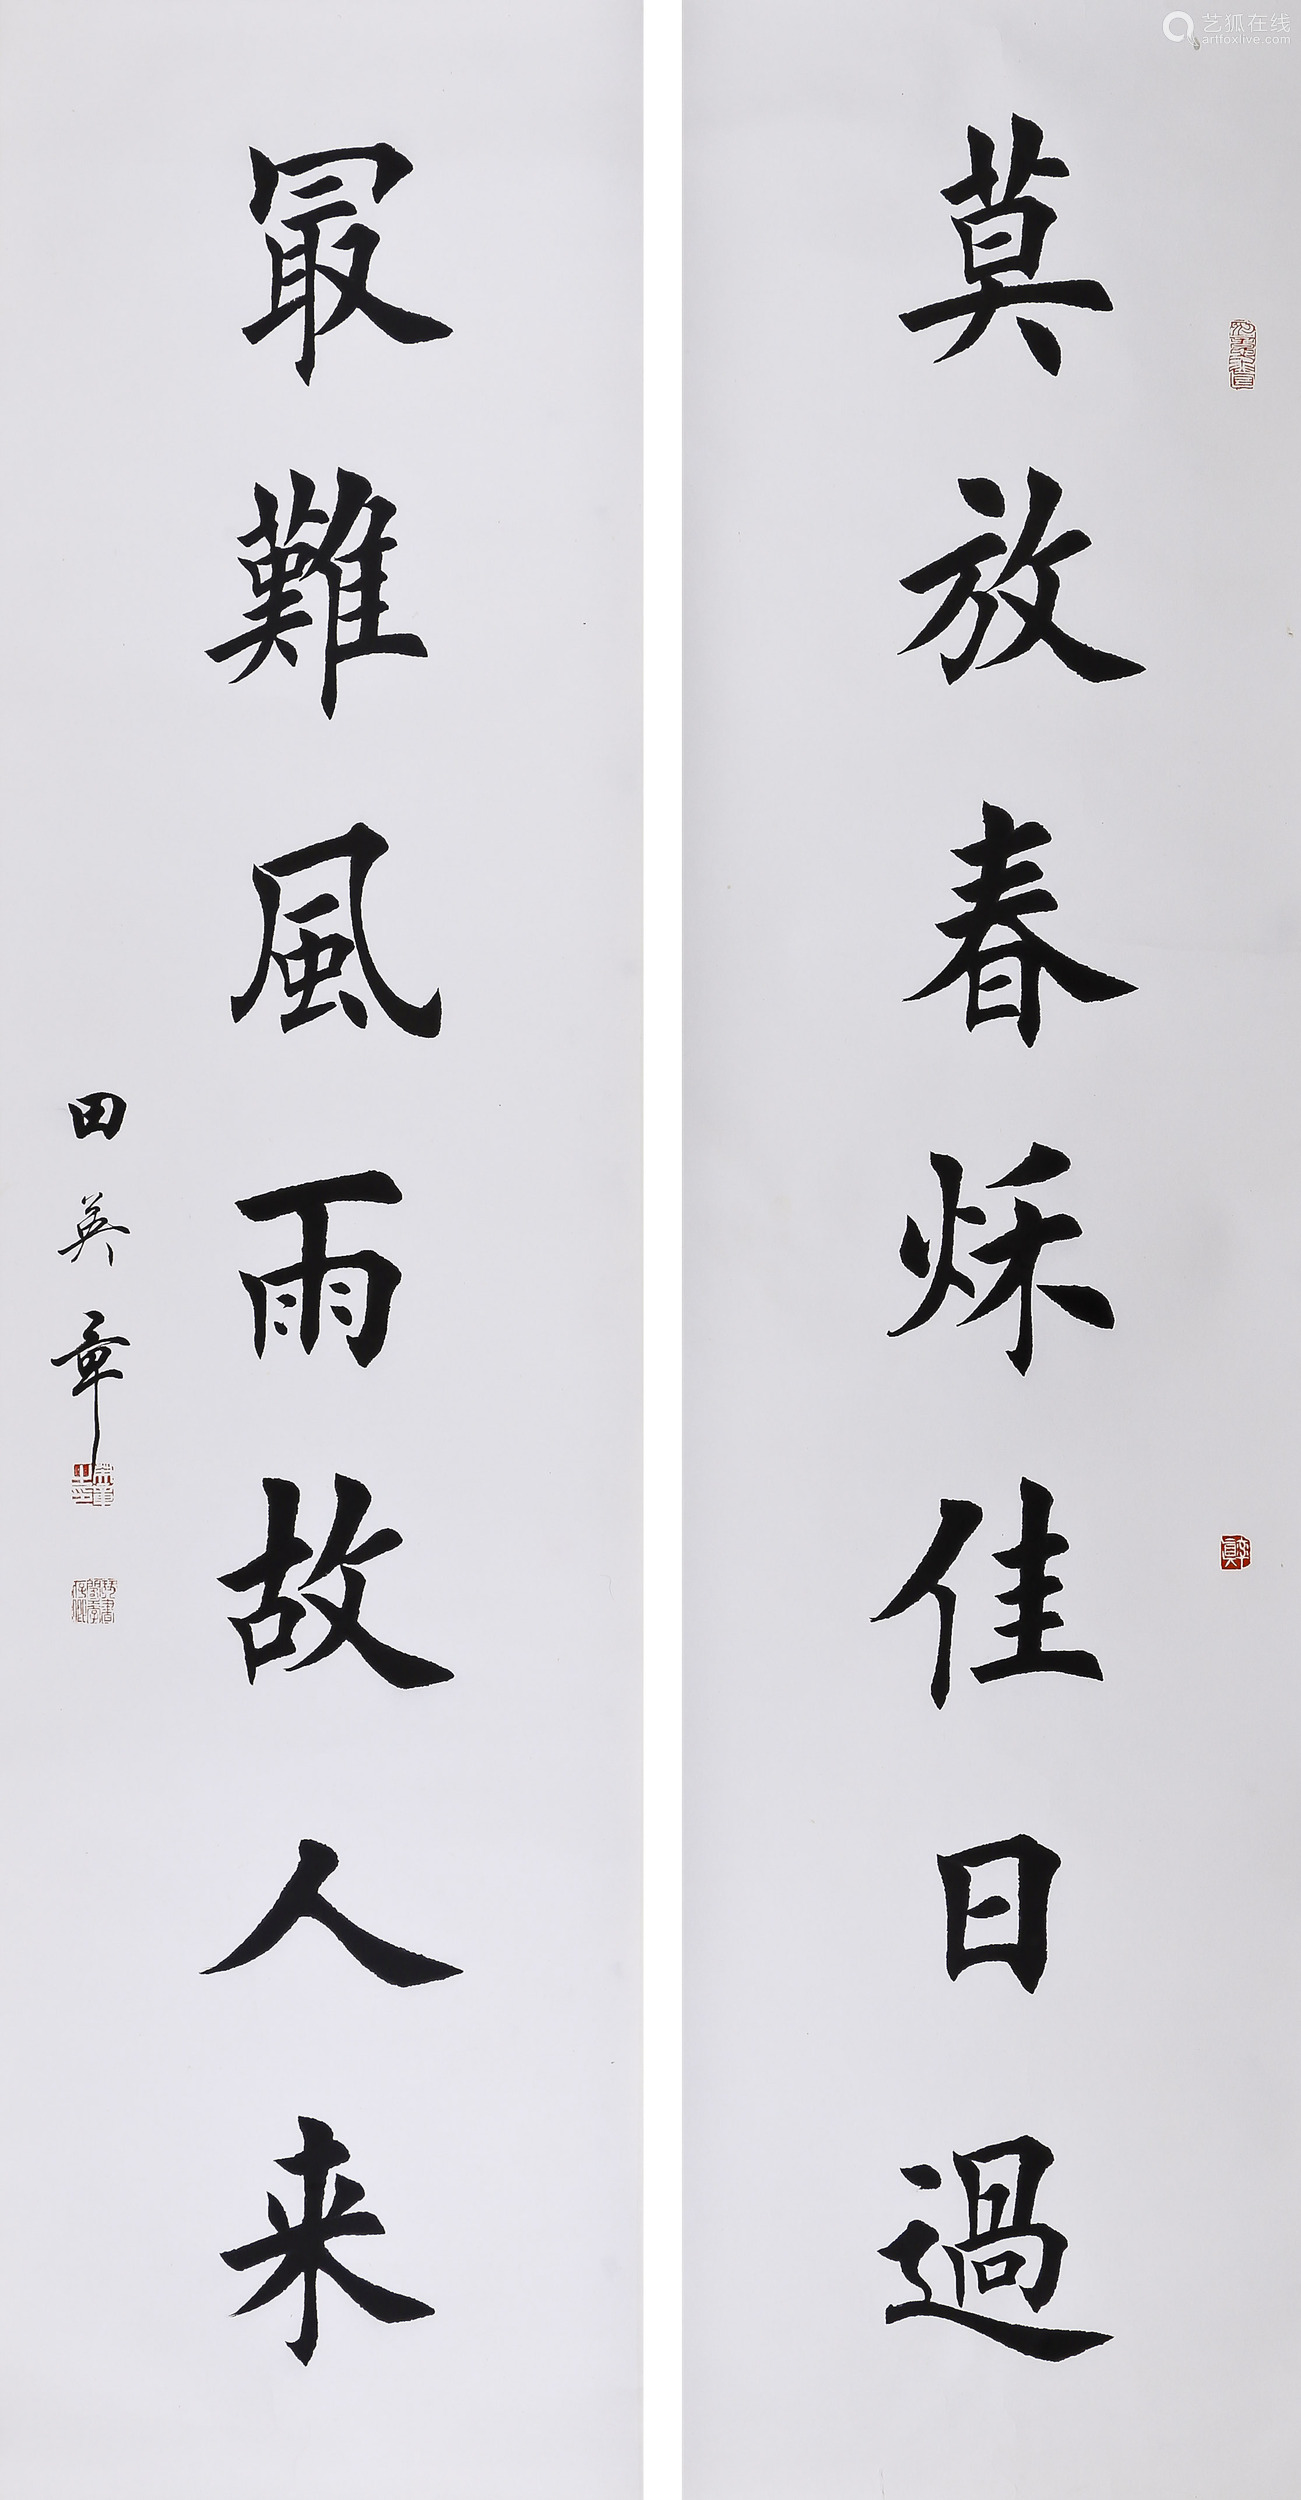 莫放春烁佳日過
冣難風雨故人来
田英章
艺狐在线
artfoxlive.com